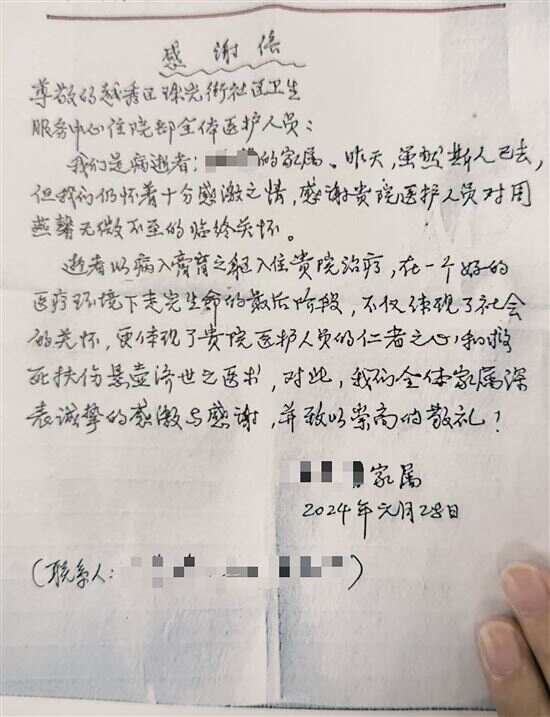 感谢信
尊敬的越秀区珠光街社区卫生
服务中心住院部全体医护人员：
我们是病逝者：的家属。昨天，虽然斯人已去，
但我们仍怀着十分感激之情，感谢贵院医护人员对周
燕馨无微不至的临终关怀。
逝者以病入膏肓之躯入住贵院治疗，在一个好的
医疗环境下走完生命的最后阶段，不仅体现了社会
的关怀，更体现了贵院医护人员的仁者之心和救
死扶伤悬壶济世之医术，对此，我们全体家属深
表诚挚的感激与感谢，并致以崇高的敬礼！
家属
2024年元月28日
（联系人：）